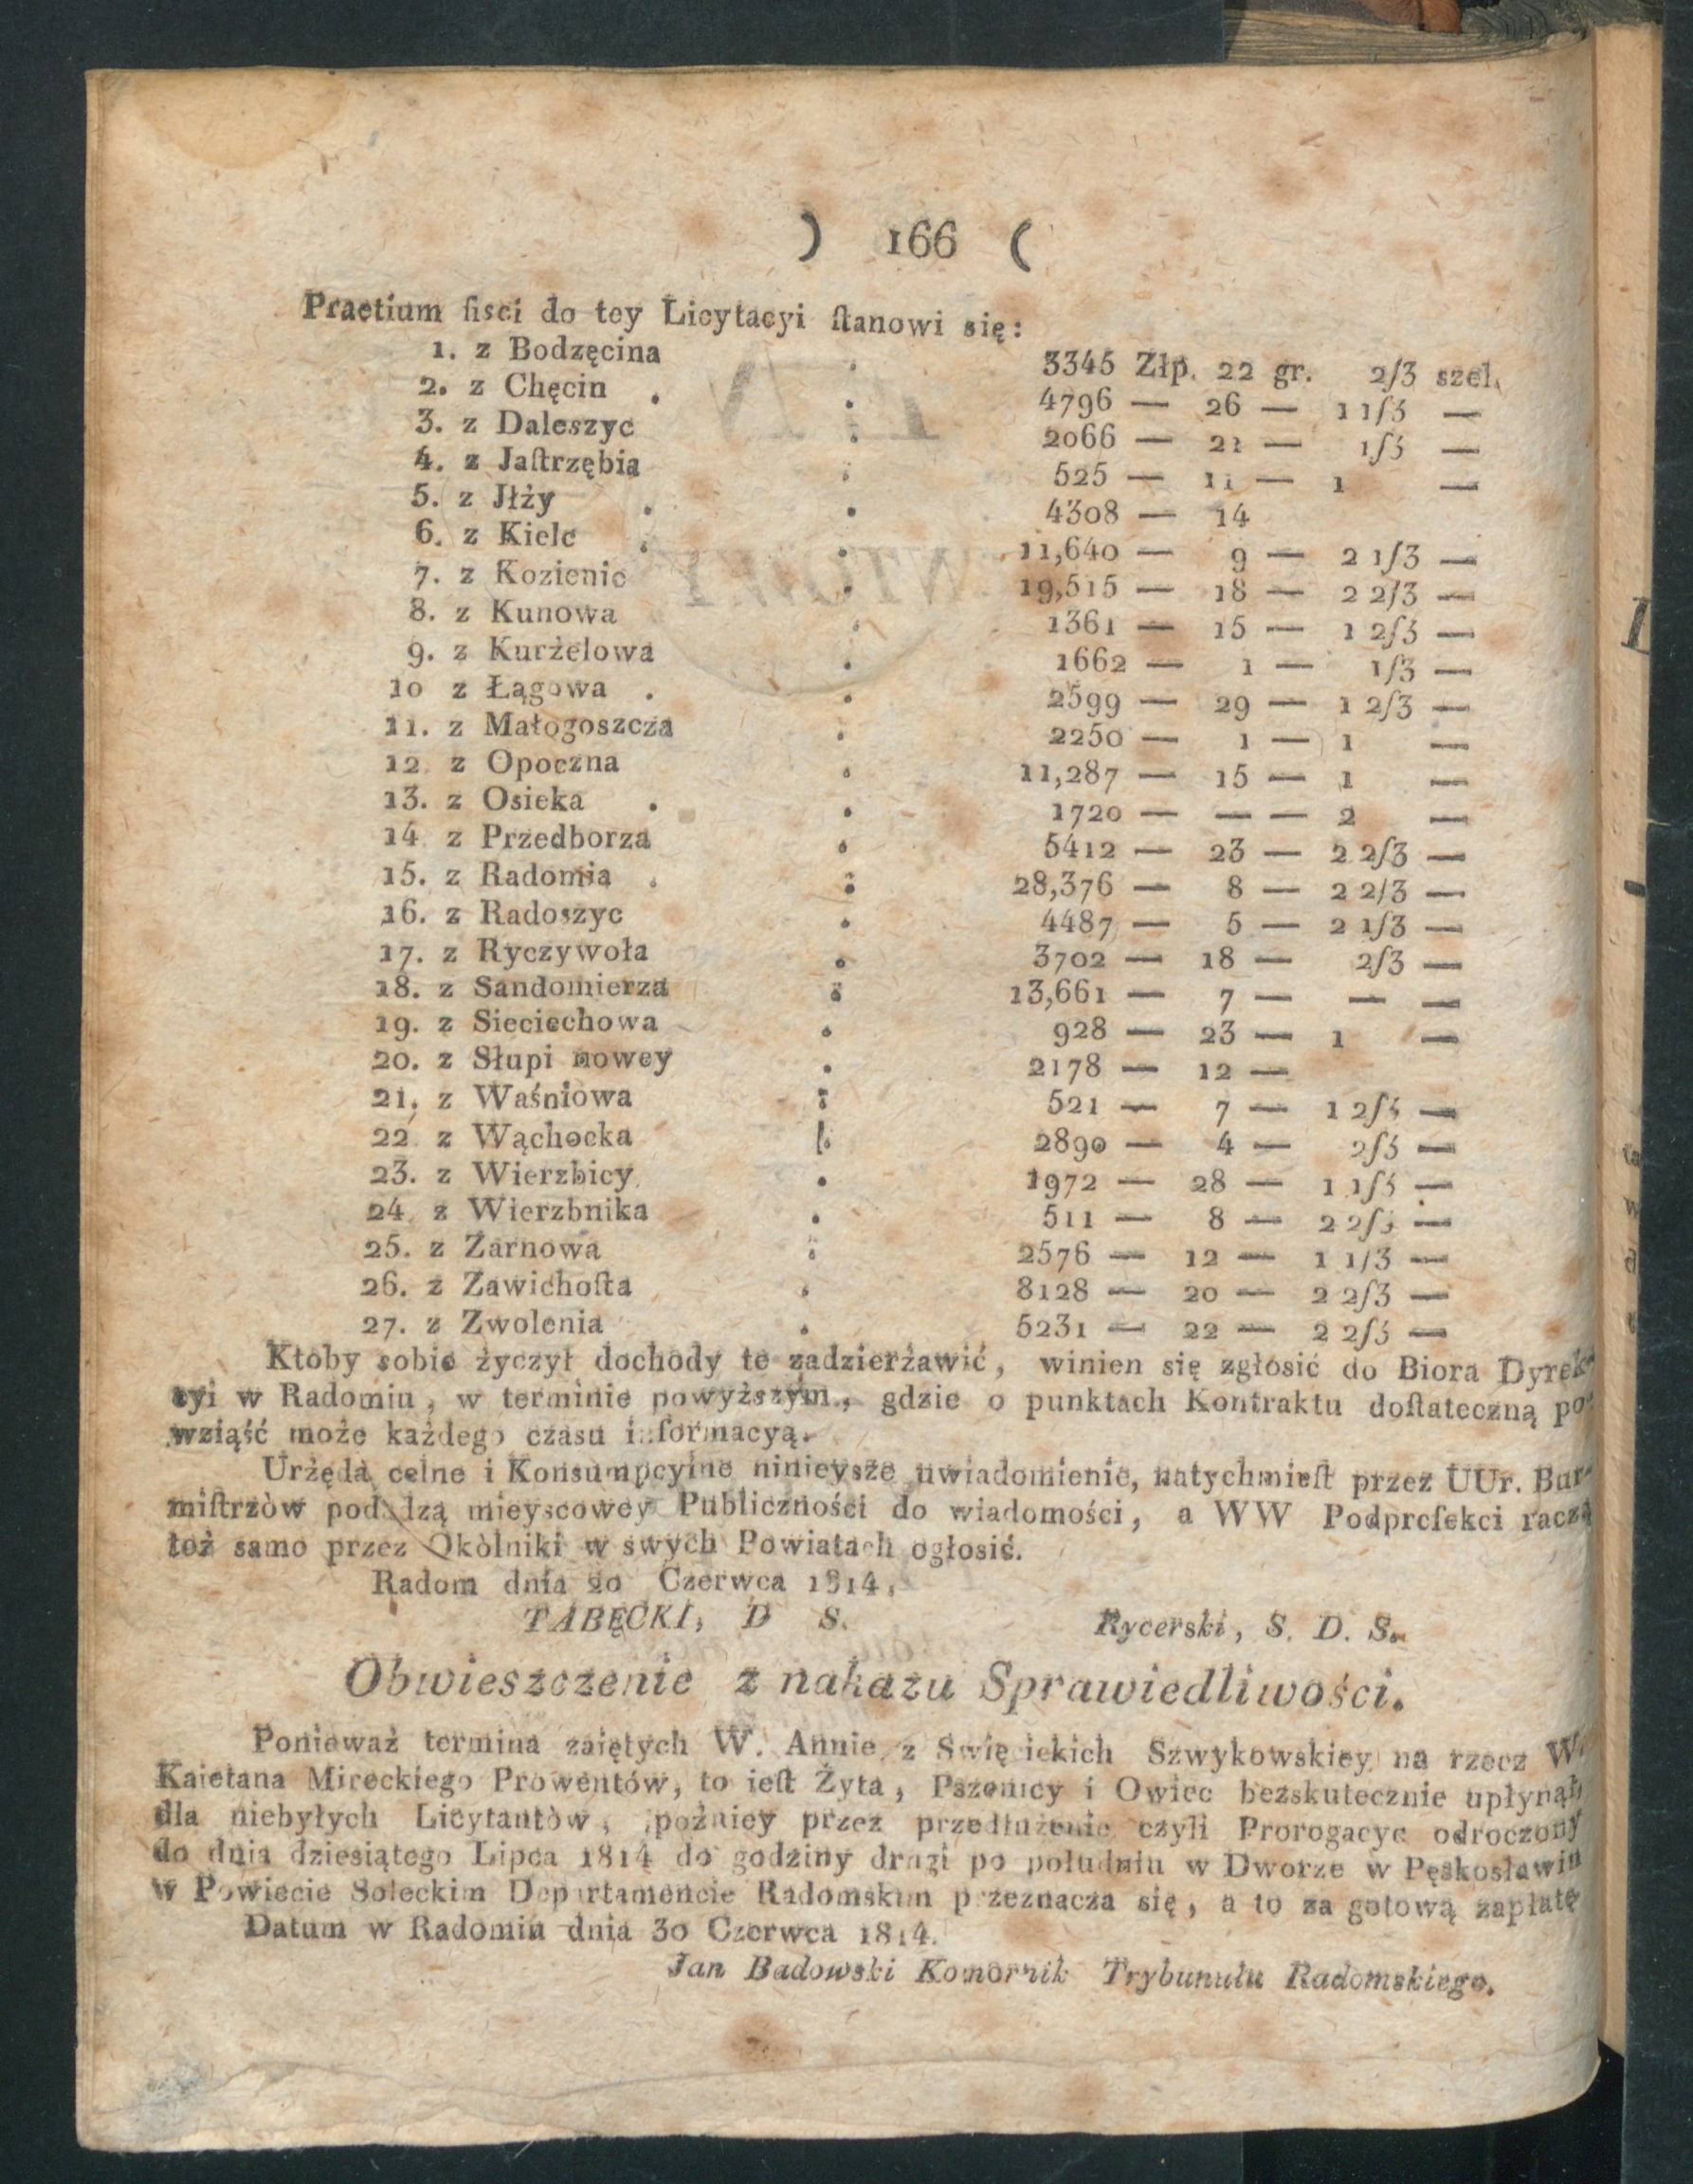 ) 166 (
Praetium fisci do tey Licytacyi ſtanowi się:
1. z Bodzęcina . 3345 Złp. 22 gr. 2/3 szel.
2. z Chęcin . . 4796 — 26 — 1 1/3 —
3. z Daleszyc . 2066 — 21 — 1/3 —
4. z Jaſtrzębia . 525 — 11 — 1 —
5. z Jłży . . 4308 — 14
6. z Kielc . . 11,640 — 9 — 2 1/3 —
7. z Kozienic . 19,515 — 18 — 2 2/3 —
8. z Kunowa . 1361 — 15 — 1 2/3 —
9. z Kurżelowa . 1662 — 1 — 1/3 —
10 z Łągowa . . 2599 — 29 — 1 2/3 —
11. z Małogoszcza . 2250 — 1 — 1 —
12 z Opoczna . 11,287 — 15 — 1 —
13. z Osieka . . 1720 — — — 2 —
14 z Przedborza . 5412 — 23 — 2 2/3 —
15. z Radomia . . 28,376 — 8 — 2 2/3 —
16. z Radoszyc . 4487 — 5 — 2 1/3 —
17. z Ryczywoła . 3702 — 18 — 2/3 —
18. z Sandomierza . 13,661 — 7 — — —
19. z Sieciechowa . 928 — 23 — 1 —
20. z Słupi nowey . 2178 — 12 —
21. z Waśniowa . 521 — 7 — 1 2/3 —
22 z Wąchocka . 2890 — 4 — 2/3 —
23. z Wierzbicy . 1972 — 28 — 1 1/3 —
24 z Wierzbnika . 511 — 8 — 2 2/3 —
25. z Żarnowa . 2576 — 12 — 1 1/3 —
26. z Zawichoſta . 8128 — 20 — 2 2/3 —
27. z Zwolenia . 5231 — 22 — 2 2/3 —
Ktoby sobie życzył dochody te zadzierżawić, winien się zgłosić do Biora Dyrek-
cyi w Radomiu, w terminie powyższym, gdzie o punktach Kontraktu doſtateczną po-
wziąść może każdego czasu informacyą.
Urzęda celne i Konsumpcyine ninieysze uwiadomienie, natychmieſt przez UUr. Bur-
miſtrzòw podadzą mieyscowey Publiczności do wiadomości, a WW Podprefekci raczą
toż samo przez Okòlniki w swych Powiatach ogłosić.
Radom dnia 20 Czerwca 1814.
TABĘCKI, D S. Rycerski, S. D. S.
Obwieszczenie z nakazu Sprawiedliwości.
Ponieważ termina zaiętych W. Annie z Swięcickich Szwykowskiey na rzecz W.
Kaietana Mireckiego Prowentów, to ieſt Żyta, Pszenicy i Owiec bezskutecznie upłynął,
dla niebyłych Licytantòw, poźniey przez przedłużenie czyli Prorogacye odroczony
do dnia dziesiątego Lipca 1814 do godziny drugi po południu w Dworze w Pęskosławiu
w Powiecie Soleckim Departamencie Radomskim przeznacza się, a to za gotową zapłatę
Datum w Radomiu dnia 30 Czerwca 1814.
Jan Badowski Komornik Trybunału Radomskiego.